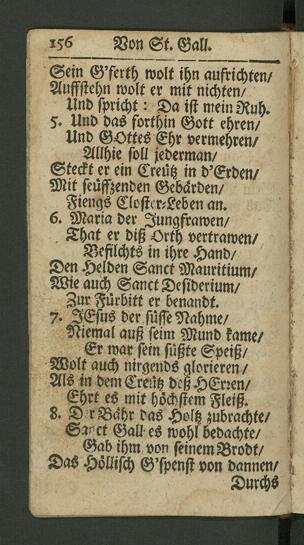 156 Von St. Gall.
Sein G'ferth wolt ihn aufrichten/
Auffstehn wolt er mit nichten/
Und spricht: Da ist mein Ruh.
5. Und das forthin Gott ehren/
Und GOttes Ehr vermehren/
Allhie soll jederman/
Steckt er ein Creütz in d'Erden/
Mit seüffzenden Gebärden/
Fiengs Closter-Leben an.
6. Maria der Jungfrawen/
That er diß Orth vertrawen/
Befilchts in ihre Hand/
Den Helden Sanct Mauritium/
Wie auch Sanct Desiderium/
Zur Fürbitt er benandt.
7. JEsus der süsse Nahme/
Niemal auß seim Mund kame/
Er war sein süßte Speiß/
Wolt auch nirgends glorieren/
Als in dem Creütz deß HErren/
Ehrt es mit höchstem Fleiß.
8. D r Bähr das Holtz zubrachte/
Sanct Gall es wohl bedachte/
Gab ihm von seinem Brodt/
Das Höllisch G'spenst von dannen/
Durchs